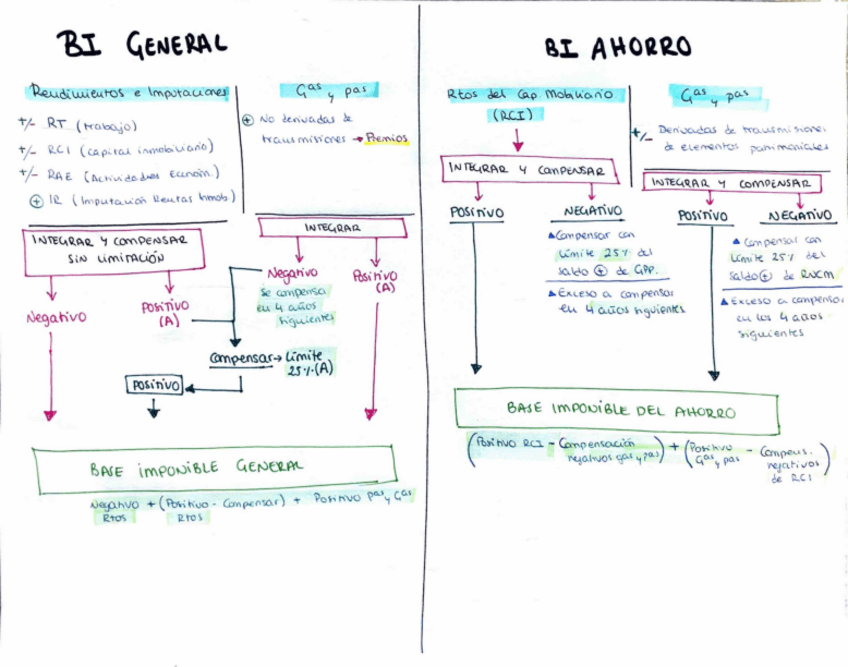 BI GENERAL
Rendimientos e Imputaciones
+/- RT (trabajo)
+/- RCI (capital inmobiliario)
+/- RAE (Actividades Económ.)
⊕ IR (Imputación Rentas Inmob)
Gas y pas
⊕ No derivadas de
transmisiones → Premios
INTEGRAR Y COMPENSAR
SIN LIMITACIÓN
Negativo
Positivo
(A)
INTEGRAR
Negativo
Se compensa
en 4 años
siguientes
Positivo
(A)
Compensar → Límite
25%(A)
POSITIVO
BASE IMPONIBLE GENERAL
Negativo + (Positivo - Compensar) + Positivo pas y Gas
Rtos Rtos
BI AHORRO
Rtos del Cap. Mobiliario
(RCI)
INTEGRAR Y COMPENSAR
POSITIVO
NEGATIVO
▲Compensar con
Límite 25% del
saldo ⊕ de GPP.
▲Exceso a compensar
en 4 años siguientes
Gas y pas
+/- Derivadas de transmisiones
de elementos patrimoniales
INTEGRAR Y COMPENSAR
POSITIVO
NEGATIVO
▲ Compensar con
Límite 25% del
saldo ⊕ de RNCM
▲Exceso a compensar
en los 4 años
siguientes
BASE IMPONIBLE DEL AHORRO
(Positivo RCI - Compensación negativos gas y pas) + (Positivo Gas y pas - Compens. negativos de RCI)